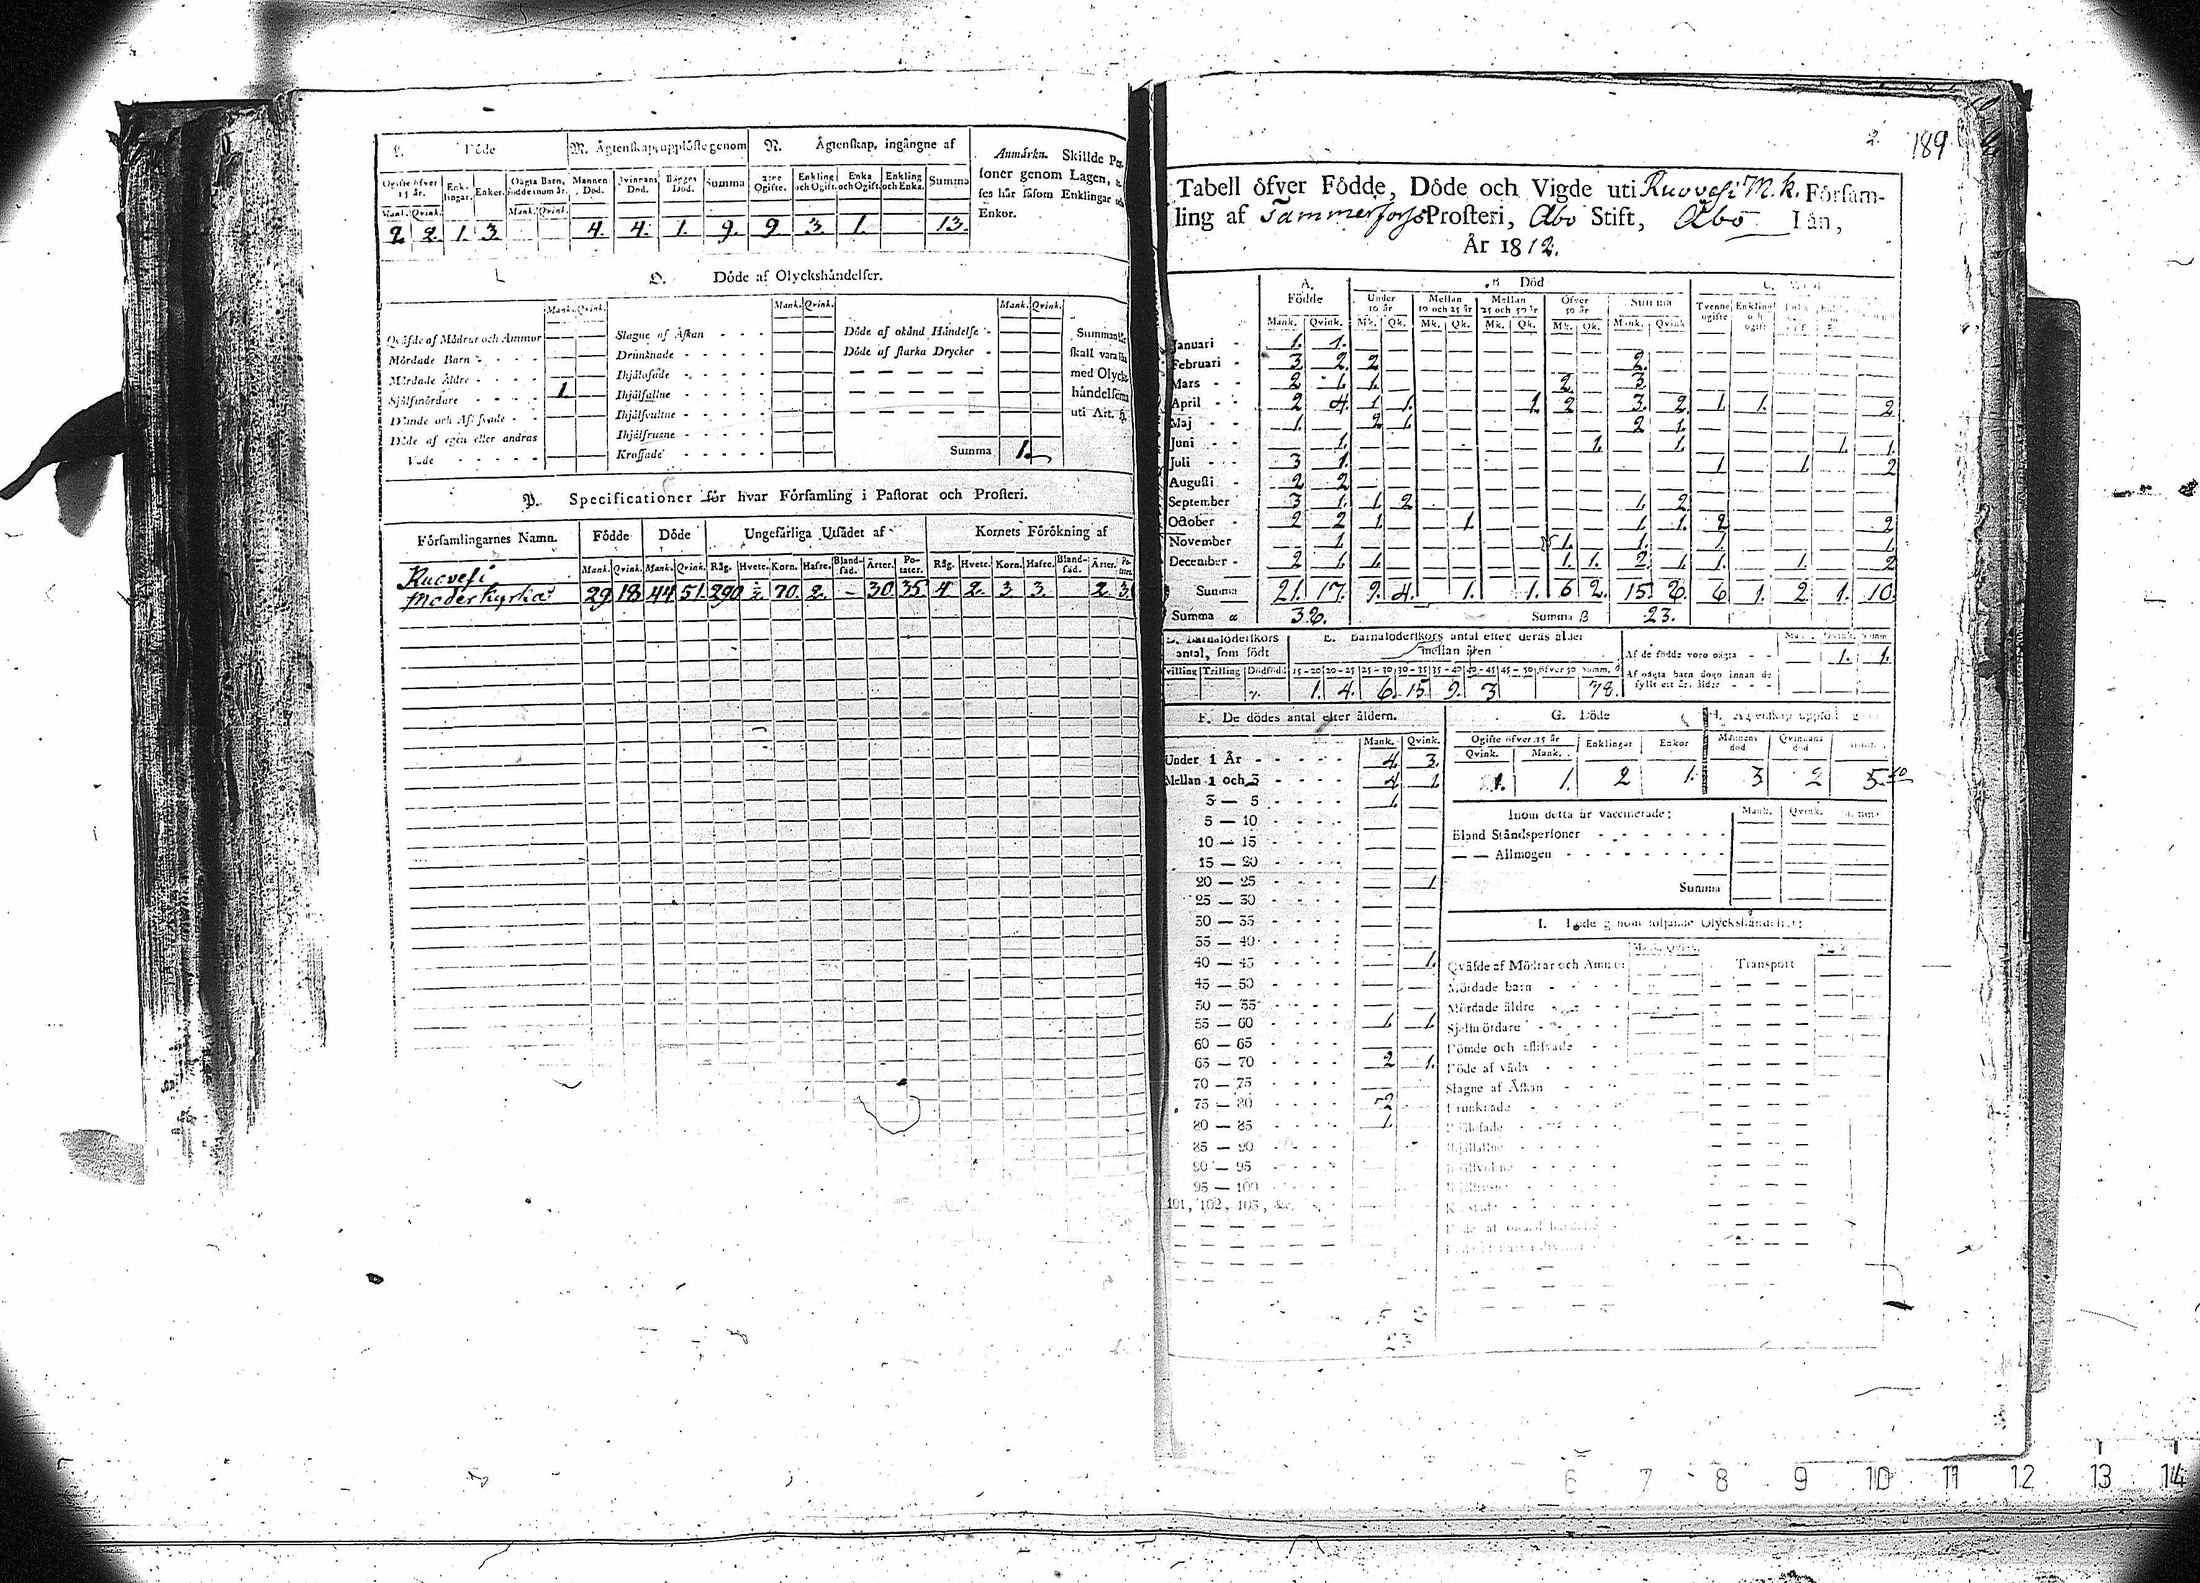 2. 189
L. Döde M. Ägtenskap, upplöste genom N. Ägtenskap, ingångne af
Ogifte öfver 15 år. Enk-lingar. Enkor. Oägta Barn, födde inom år. Mannens Död. Qvinnans Död. Bägges Död. Summa 2:ne Ogifte. Enkling och Ogift. Enka och Ogift. Enkling och Enka. Summa
Mank. Qvink. Mank. Qvink.
2. 2. 1. 3. 4. 4. 1. 9. 9. 3. 1. 13.
Anmärkn. Skillde Per-
soner genom Lagen,
ses här såsom Enklingar och
Enkor.
O. Döde af Olyckshändelser.
Mank. Qvink. Mank. Qvink. Mank. Qvink.
Qväfde af Mödrar och Ammor Slagne af Åskan - - - Döde af okänd Händelse - Summan
Mördade Barn - - - - Drunknade - - - - Döde af starka Drycker - skall vara
Mördade Äldre - - - - Ihjälosade - - - - med Olycks-
Självmördare - - - - 1. Ihjälfallne - - - - händelserna
Dömde och Aflifvade - - Ihjälsvultne - - - - uti Art.
Döde af egen eller andras Ihjälfrusne - - - -
Våde - - - - - Krossade - - - - Summa 1.
P. Specificationer för hvar Församling i Pastorat och Prosteri.
Församlingarnes Namn. Födde Döde Ungefärliga Utsädet af Kornets Förökning af
Mank. Qvink. Mank. Qvink. Råg. Hvete. Korn. Hafre. Bland-säd. Ärter. Po-tater. Råg. Hvete. Korn. Hafre. Bland-säd. Ärter. Po-tater.
Ruovesi
Moderkyrka 29 18 44 51. 290 70. 2. - 30 35 4 2. 3 3. 2. 3.
Tabell öfver Födde, Döde och Vigde uti Ruovesi M.k. Försam-
ling af Tammerfors Prosteri, Åbo Stift, Åbo Län,
År 1812.
A. B. Död
Födde Under 10 år Mellan 10 och 25 år Mellan 25 och 50 år Öfver 50 år Summa Tvenne ogifte Enkling och ogift
Mank. Qvink. Mk. Qk. Mk. Qk. Mk. Qk. Mk. Qk. Mank. Qvink
Januari - 1. 1.
Februari - 3 2 2 2.
Mars - - 2 1 1. 2. 3
April - - 2 4. 1 1. 1. 2 3. 2. 1. 1. 2
Maj - - 1. 2 1. 2 1.
Juni - - 1. 1. 1. 1. 1.
Juli - - - 3 1. 1 1. 2
Augusti - 2 2
September 3 1. 1. 2 1. 2
October - 2 2 1. 1 1. 1. 2 2
November 1. 1. 1. 1. 1.
December - 2 1. 1. 1. 1. 2 1. 1. 1. 2
Summa 21. 17. 9. 4. 1. 1. 6 2. 15. 8. 6. 1. 2 1. 10.
Summa α 38. Summa β 23.
D. Barnaföderskors antal, som födt E. Barnaföderskors antal efter deras ålder mellan åren
Tvilling Trilling Dödfödde 15-20 20-25 25-30 30-35 35-40 40-45 45-50 öfver 50 Summ.
1. 4. 6. 15. 9. 3
Af de födde voro oägta - - 1. 1.
Af oägta barn dogo innan de
fyllt ett års ålder - - -
F. De dödes antal efter åldern.
Mank. Qvink.
Under 1 År - - - - - 4. 3.
Mellan 1 och 3 - - - - 4 1
3 — 5 - - - - 1.
5 — 10 - - - -
10 — 15 - - - -
15 — 20 - - - -
20 — 25 - - - - 1
25 — 30 - - - -
30 — 35 - - - -
35 — 40 - - - -
40 — 45 - - - - 1.
45 — 50 - - - -
50 — 55 - - - -
55 — 60 - - - - 1. 1.
60 — 65 - - - -
65 — 70 - - - - 2 1.
70 — 75 - - - -
75 — 80 - - - - 2
80 — 85 - - - - 1.
85 — 90 - - - -
90 — 95 - - - -
95 — 100 - - - -
101, 102, 103, &c.
15 8
23
G. Döde H. Ägtenskap upplöst genom
Ogifte öfver 15 år Enklingar Enkor Männens död Qvinnans död
Qvink. Mank.
1. 1. 2 1. 3 2 5.
Inom detta år vaccinerade: Mank. Qvink. Summa
Bland Ståndspersoner - - - - - - -
— — Allmogen - - - - - - - - -
Summa
I. Döde genom följande Olyckshändelser:
Qväfde af Mödrar och Ammor Transport
Mördade barn - - - -
Mördade äldre - - - -
Sjelfmördare - - - -
Dömde och aflifvade - -
Döde af våda - - - -
Slagne af Åskan - - -
Drunknade - - - -
6 7 8 9 10 11 12 13 14